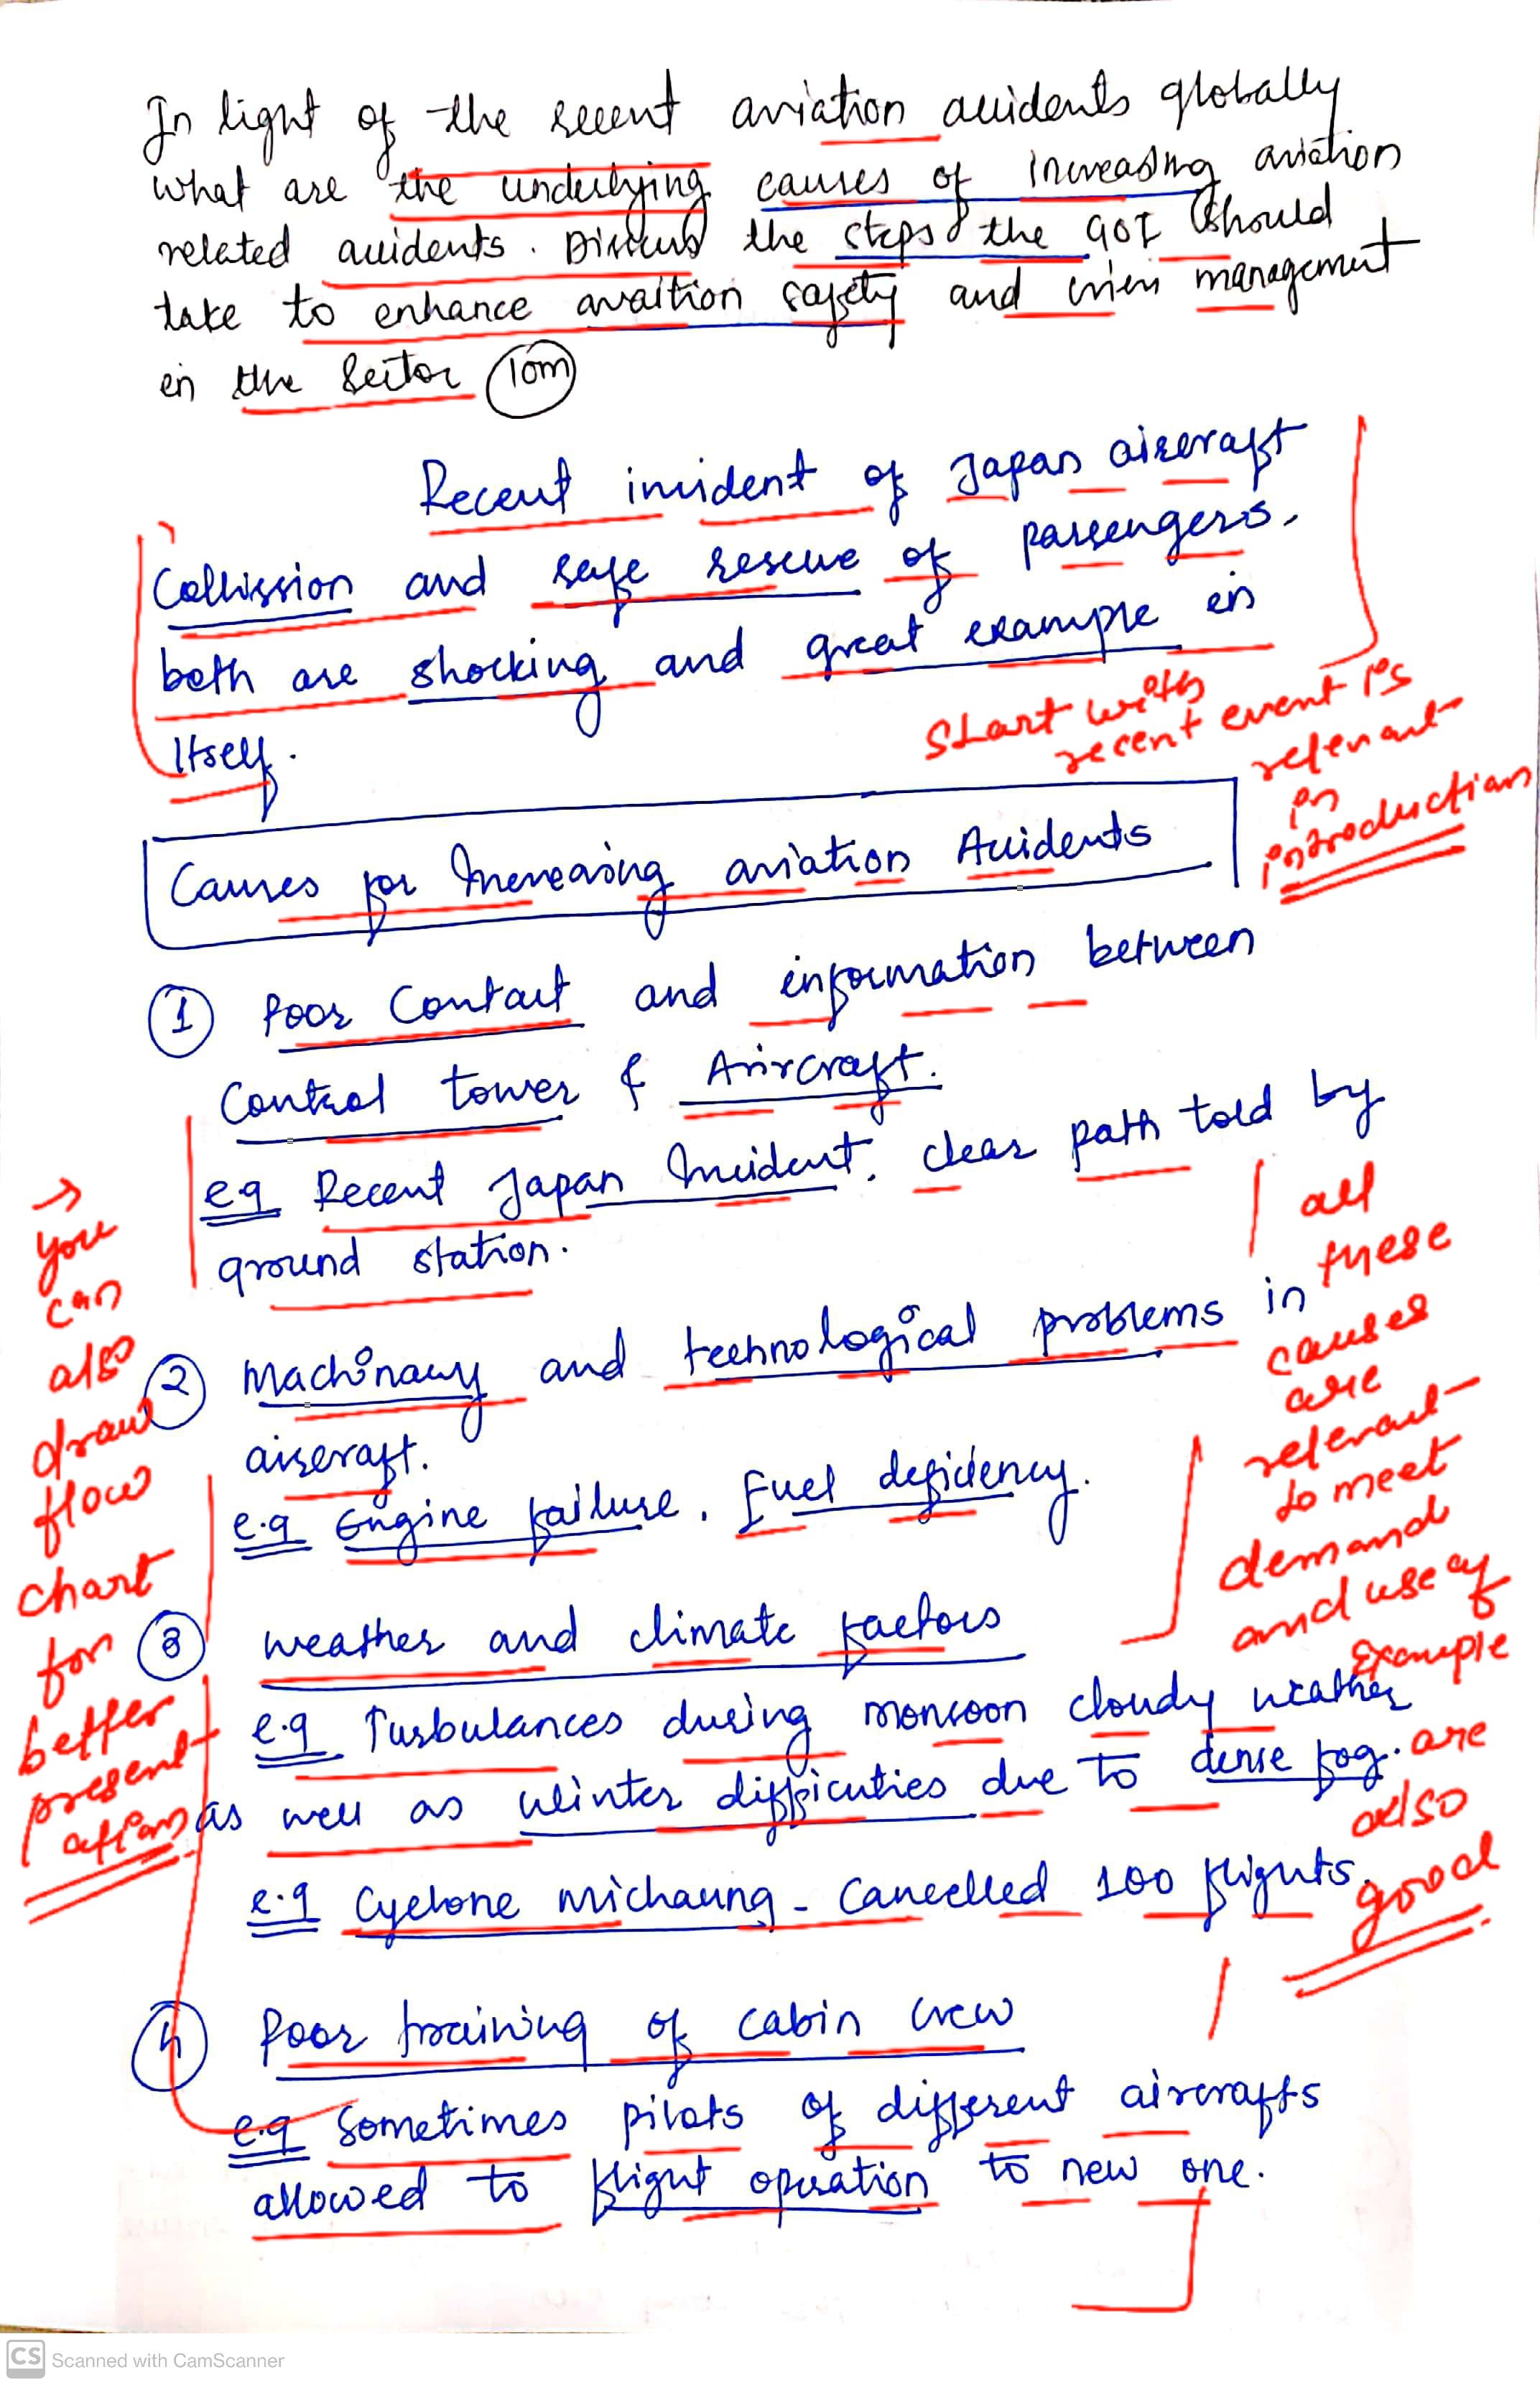 In light of the recent aviation accidents globally
what are the underlying causes of increasing aviation
related accidents. Discuss the steps the GOI should
take to enhance avaition safety and crisis management
in the sector (10m)
Recent incident of Japan aircraft
Collission and safe rescue of passengers,
both are shocking and great example in
Itself.
Start with
recent event is
relevant
in
introduction
Causes for Increasing aviation Accidents
1 Poor Contact and information between
Control tower & Arircraft.
e.g Recent Japan Incident. clear path told by
ground station.
2 Machinary and technological problems in
aircraft.
e.g Engine failure, Fuel deficiency.
3 weather and climate factors
e.g Turbulances during monsoon cloudy weather
as well as winter difficuties due to dense fog.
e.g Cyclone michaung - Cancelled 100 flights.
4 Poor training of cabin crew
e.g Sometimes pilots of different aircrafts
allowed to flight operation to new one.
→
you
can
also
draw
flow
chart
for
better
present
ation
all
these
causes
are
relevant
to meet
demand
and use of
Example
are
also
good
CS Scanned with CamScanner